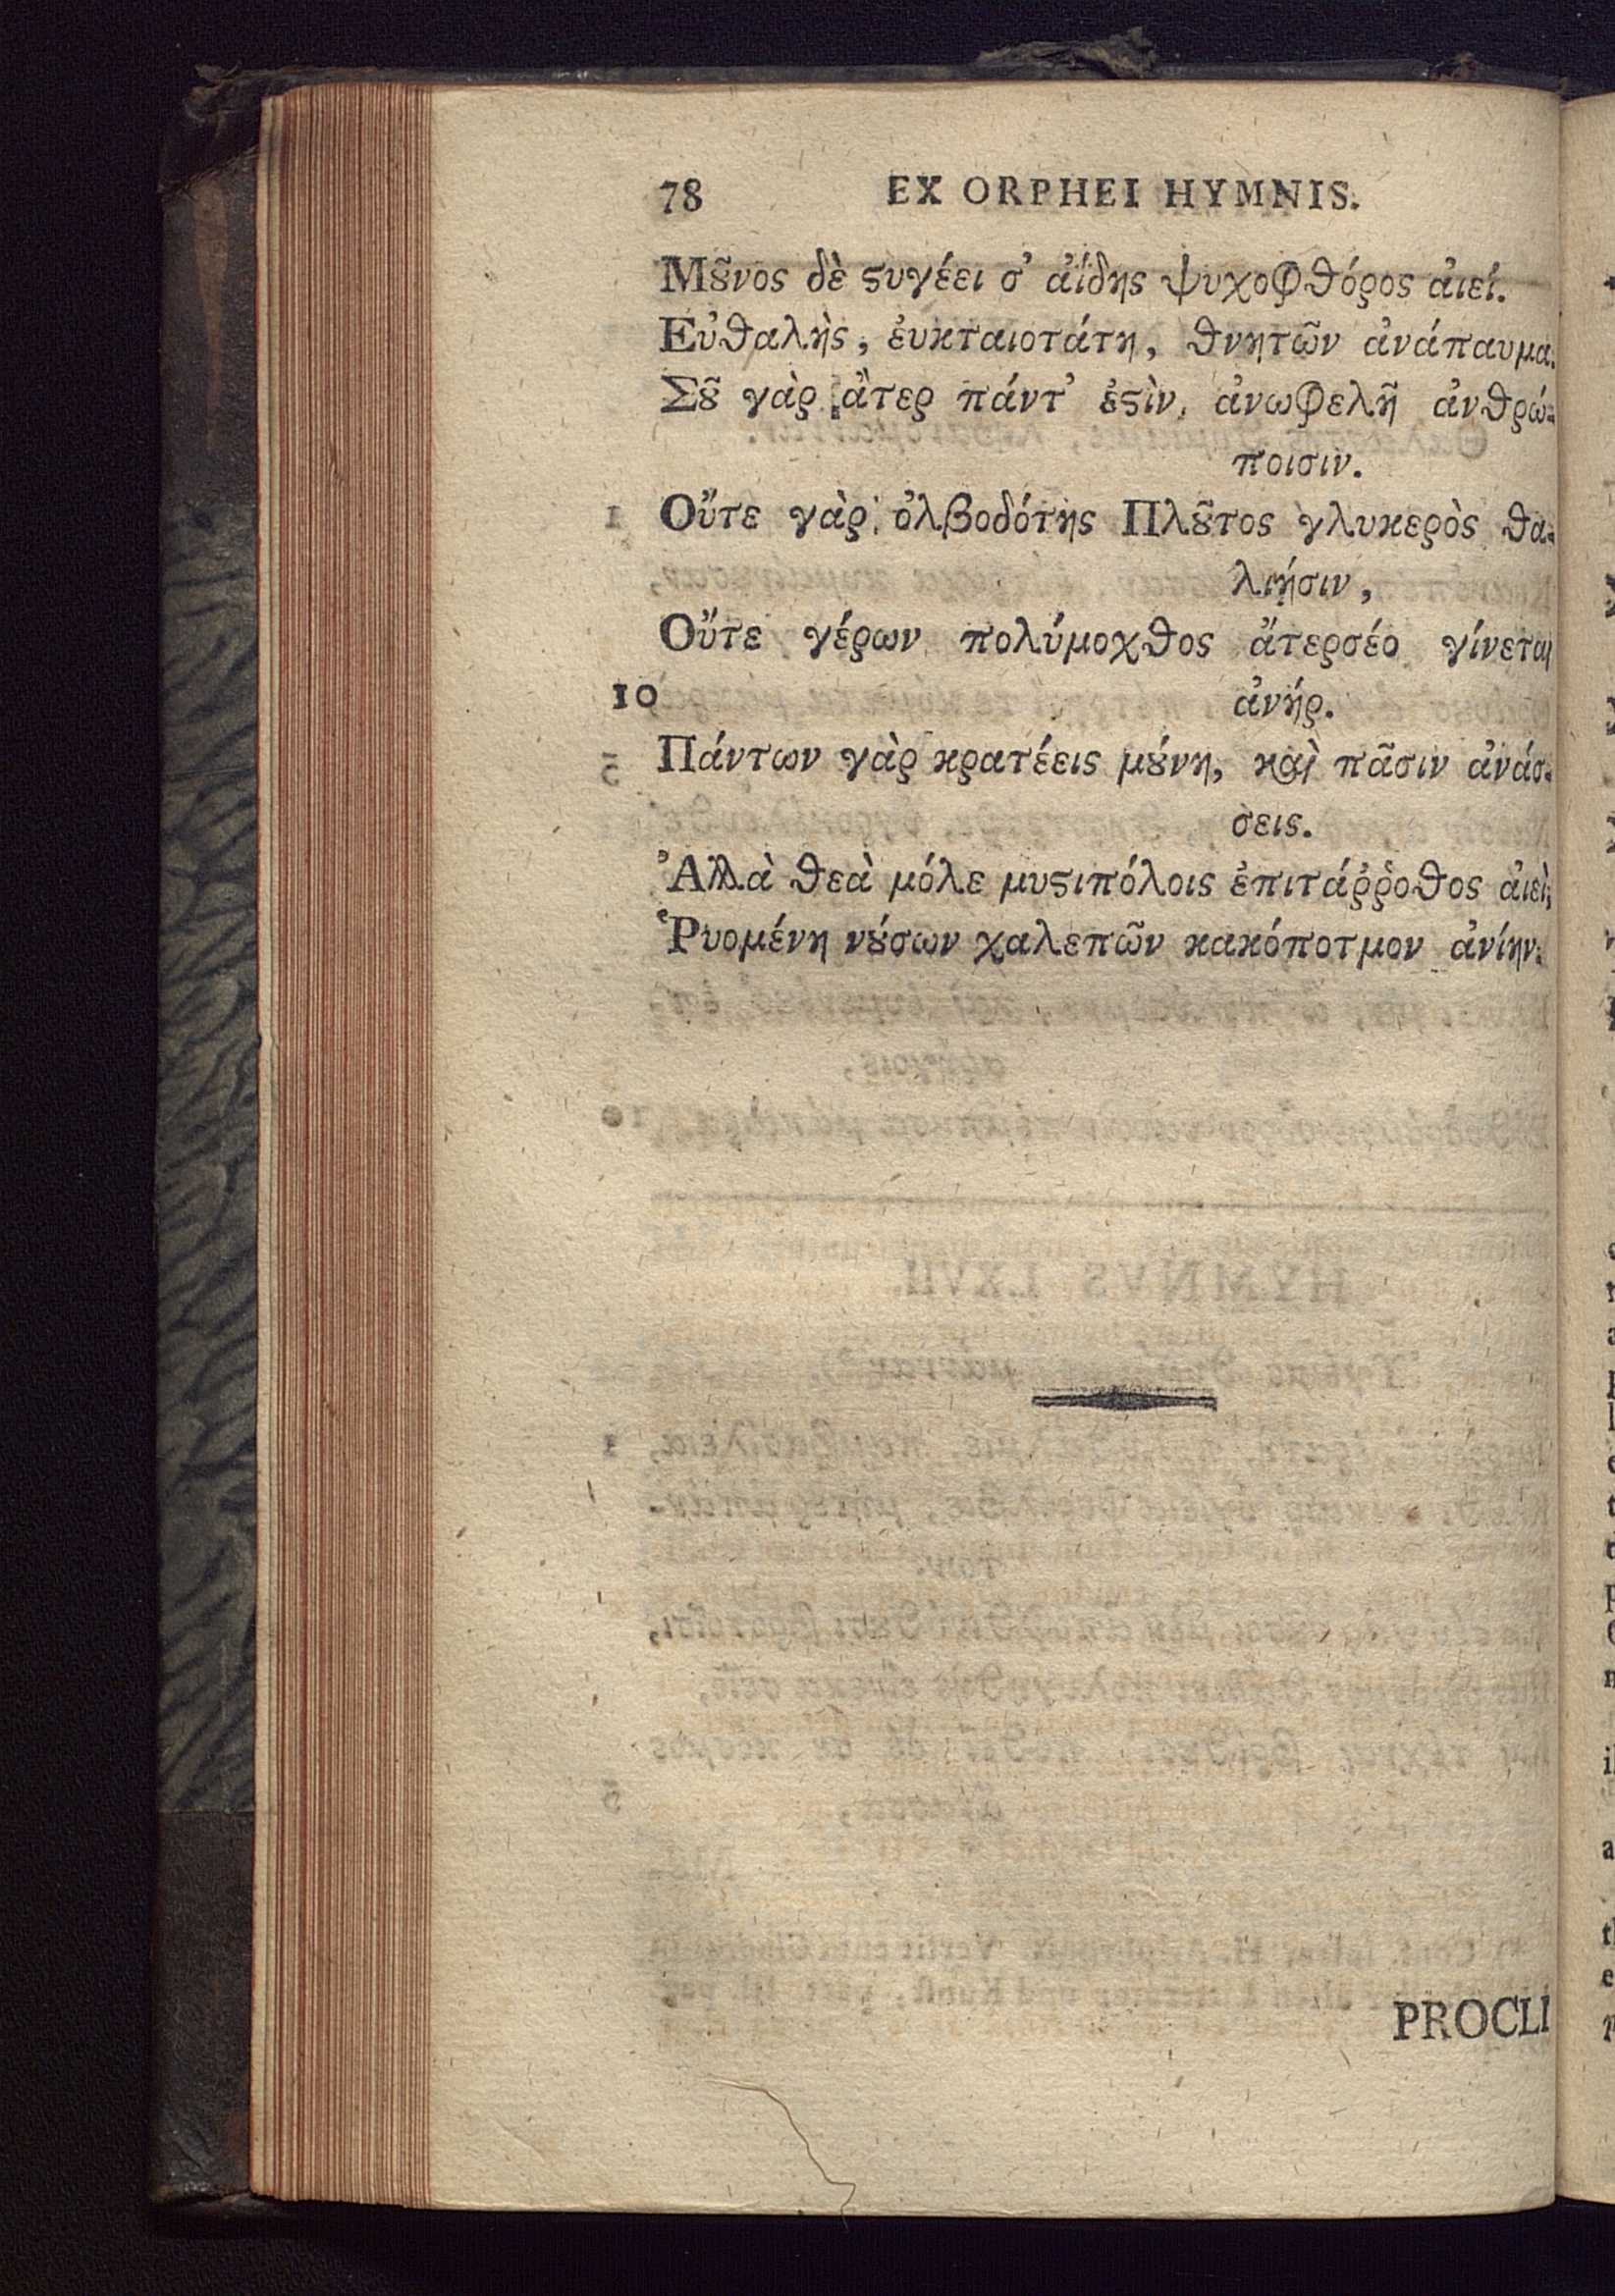 78 EX ORPHEI HYMNIS.
Μȣ͂νος δὲ ϛυγέει σ᾽ ἀίδης ψυχοφθόρος ἀιεί.
Εὐθαλὴς, ἐυκταιοτάτη, θνητῶν ἀνάπαυμα.
Σȣ͂ γὰρ ἄτερ πάντ᾽ ἐϛὶν, ἀνωφελῆ ἀνθρώ-
ποισιν.
Οὔτε γὰρ ὀλβοδότης Πλȣ͂τος γλυκερὸς θα-
λιήσιν,
Οὔτε γέρων πολύμοχθος ἄτερσέο γίνεται
10 ἀνήρ.
Πάντων γὰρ κρατέεις μȣ́νη, καὶ πᾶσιν ἀνάσ-
σεις.
Ἀλλὰ θεὰ μόλε μυϛιπόλοις ἐπιτάῤῥοθος ἀιεὶ,
Ῥυομένη νȣ́σων χαλεπῶν κακόποτμον ἀνίην.
PROCLI